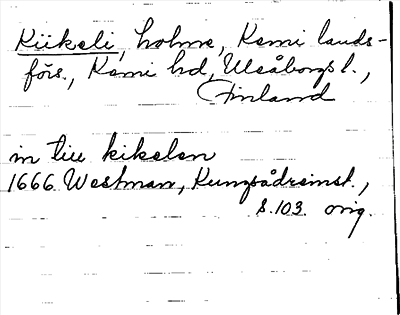 Kiikeli, holme, Kemi lands-
förs., Kemi hd, Uleåborgs l.,
Finland
in till kikelen
1666 Westman, Kungsådreinst.,
s. 103. orig.